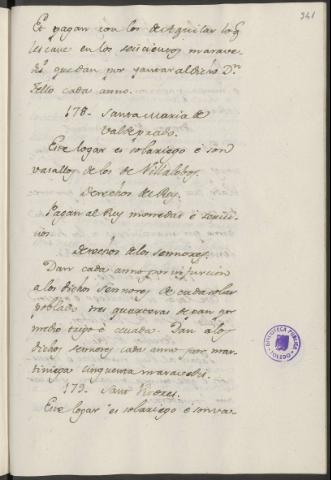 341
Et pagan con los de Aguilar lo q̃
les cave en los seiscientos marave-
dis que dan por yantar al dicho Dn
Tello cada anno.
178. Santa Maria de
Valdeprado.
Este logar es solariego è son
vasallos de los de Villalobos.
Derechos de Rey.
Pagan al Rey monedas è servi-
cios.
derechos de los sennores.
Dan cada anno por infurcion
a los dichos sennores de cada solar
poblado tres quarteros de pan por
medio trigo è cevada. Dan a los
dichos sennores cada anno por mar-
tiniega cinquenta maravedis.
179. Sant
Este logar es solariego è son va-
BIBLIOTECA PUBLICA